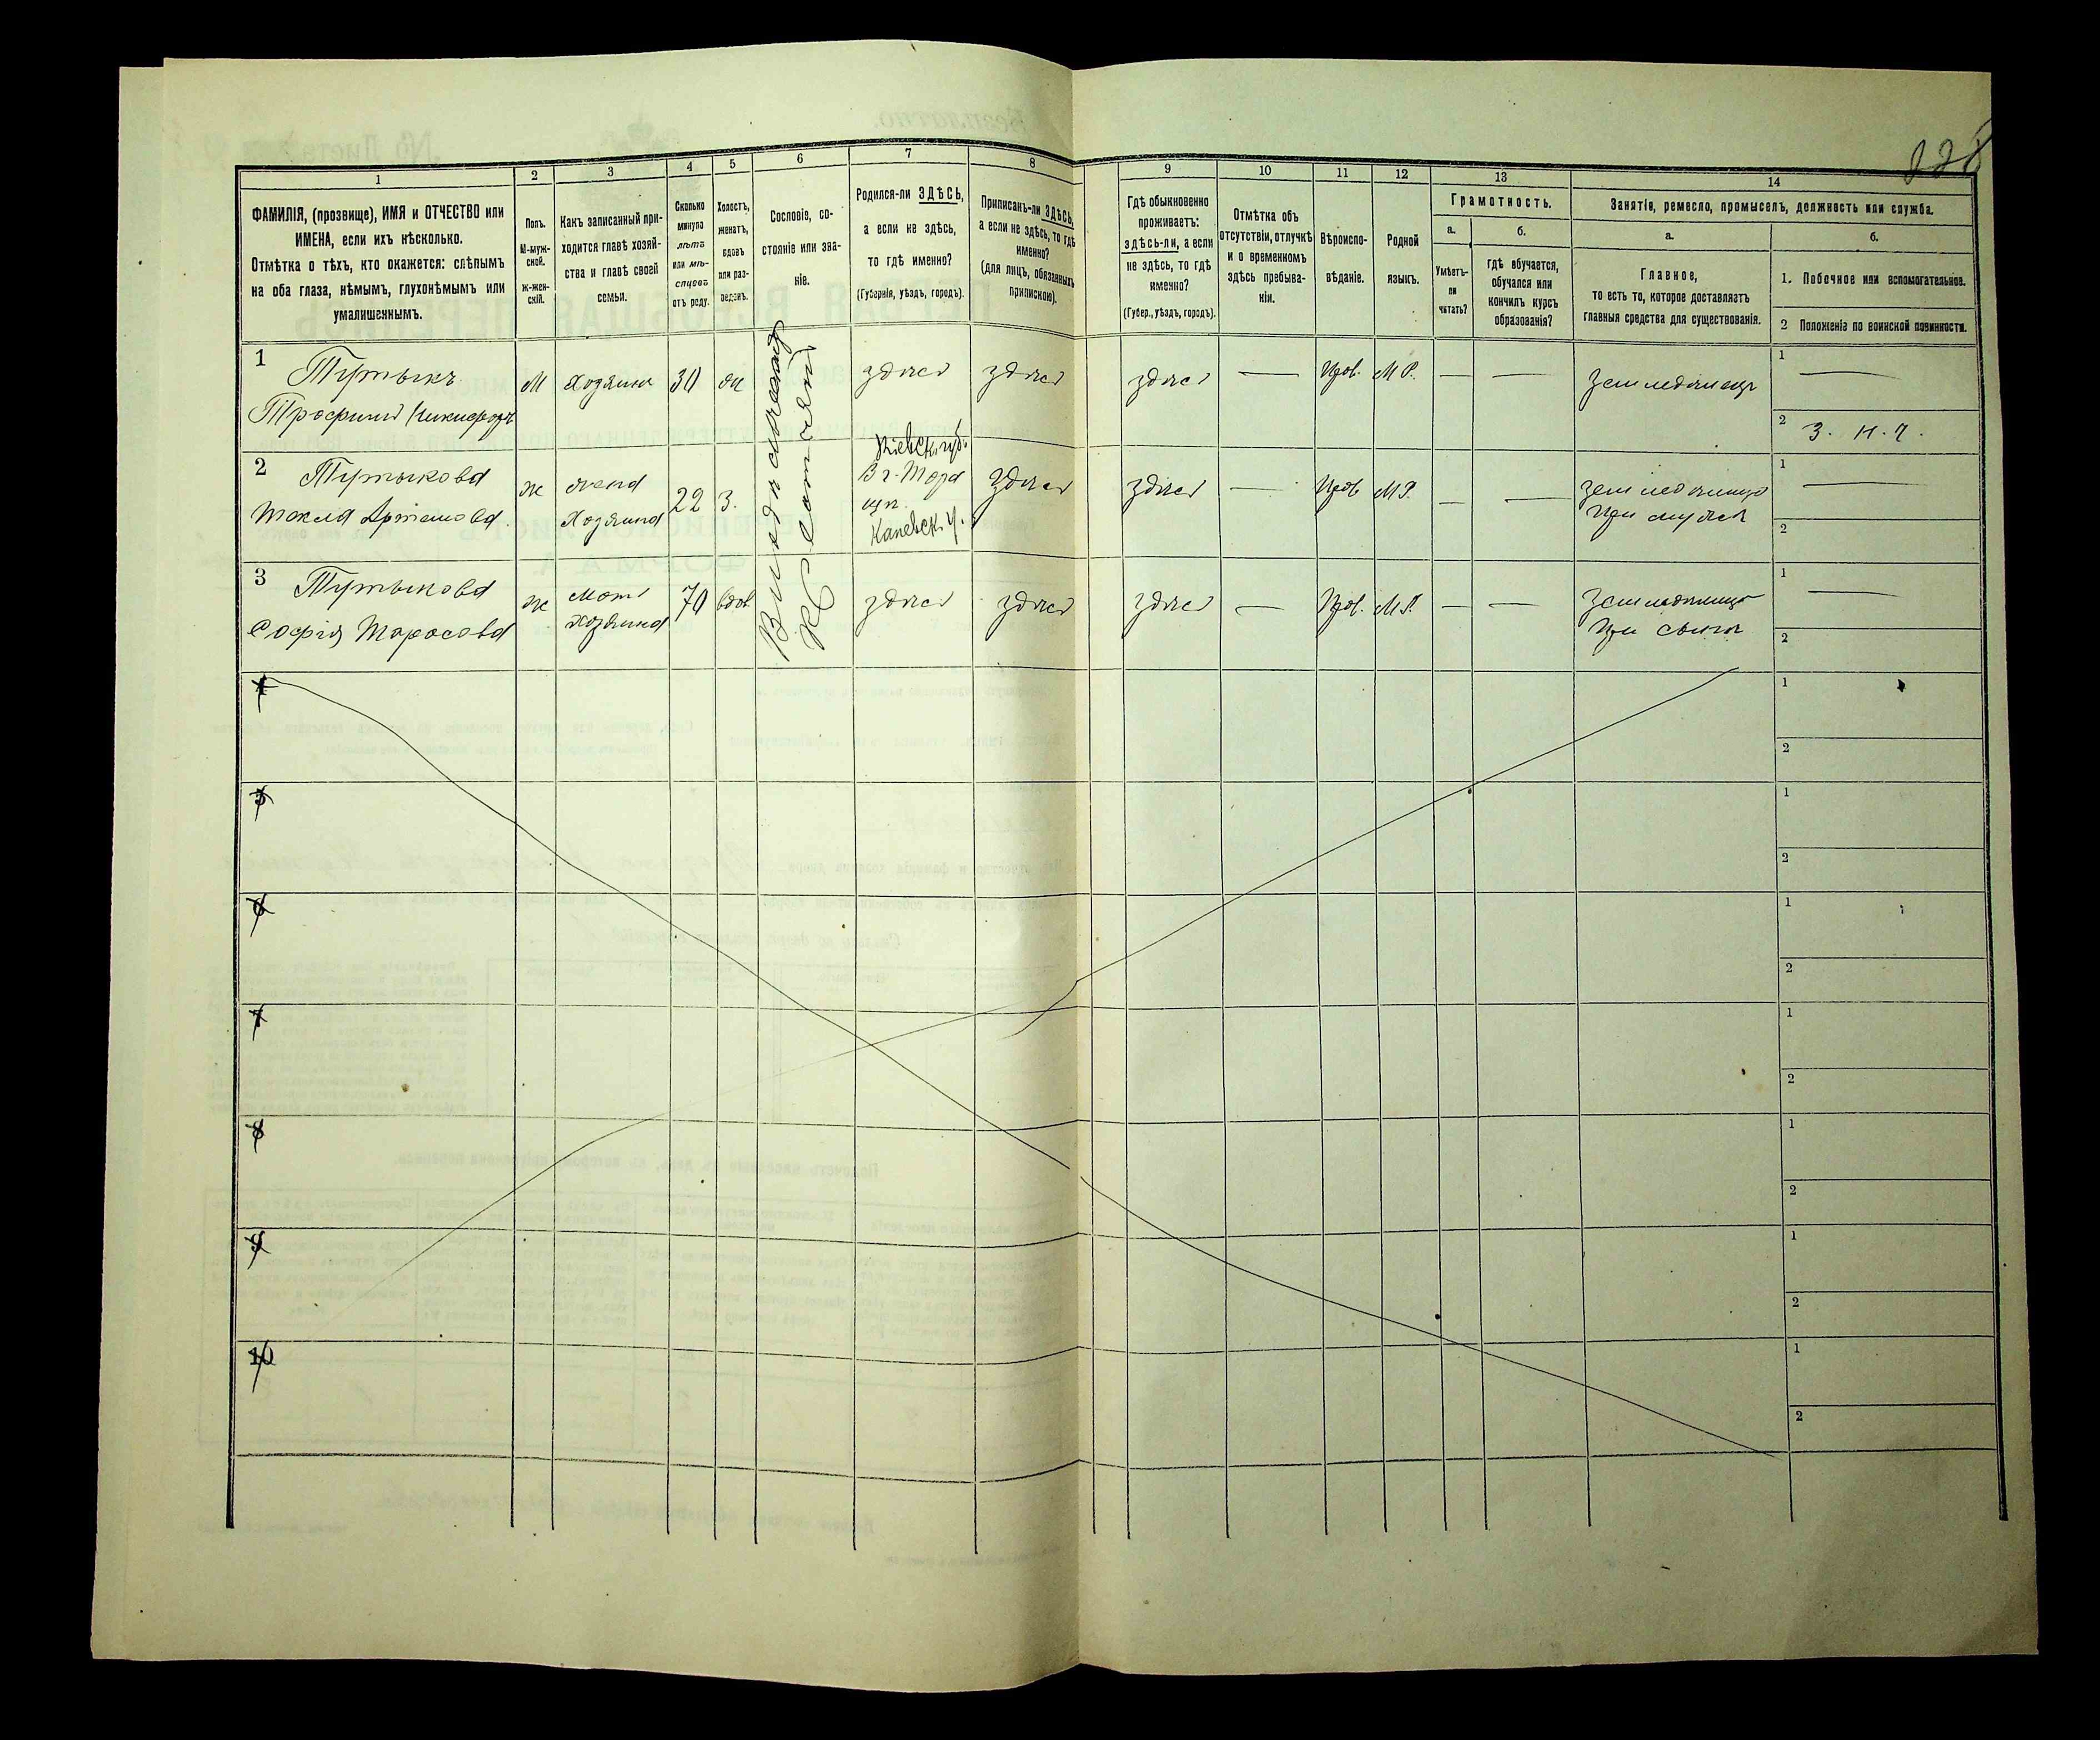 228
1
2
3
4
5
6
7
8
9
10
11
12
13
14
ФАМИЛІЯ, (прозвище), ИМЯ и ОТЧЕСТВО или
ИМЕНА, если ихъ нѣсколько.
Отмѣтка о тѣхъ, кто окажется: слѣпымъ
на оба глаза, нѣмымъ, глухонѣмымъ или
умалишеннымъ.
Полъ.
М-муж-
ской.
Ж-жен-
скій.
Какъ записанный при-
ходится главѣ хозяй-
ства и главѣ своей
семьи.
Сколько
минуло
лѣтъ
или мѣ-
сяцевъ
отъ роду.
Холостъ,
женатъ,
вдовъ
или раз-
веденъ.
Сословіе, со-
стояніе или зва-
ніе.
Родился-ли ЗДѢСЬ,
а если не здѣсь,
то гдѣ именно?
(Губернія, уѣздъ, городъ).
Приписанъ-ли ЗДѢСЬ,
а если не здѣсь, то гдѣ
именно?
(для лицъ, обязанныхъ
припискою).
Гдѣ обыкновенно
проживаетъ:
здѣсь-ли, а если
не здѣсь, то гдѣ
именно?
(Губер., уѣздъ, городъ).
Отмѣтка объ
отсутствіи, отлучкѣ
и о временномъ
здѣсь пребыва-
ніи.
Вѣроиспо-
вѣданіе.
Родной
языкъ.
Грамотность.
а.
Умѣетъ-
ли
читать?
б.
гдѣ обучается,
обучался или
кончилъ курсъ
образованія?
Занятіе, ремесло, промыселъ, должность или служба.
а.
Главное,
то есть то, которое доставляетъ
главныя средства для существованія.
б.
1. Побочное или вспомогательное.
2 Положеніе по воинской повинности.
1
Тутыкъ
Трофимъ Никифоръ
М
Хозяинъ
30
же
здѣсь
здѣсь
здѣсь
—
Прав.
М Р.
—
—
Земледѣлецъ
1
—
2
3. н. ч.
2
Тутыкова
Текла Артемова
ж
жена
Хозяина
22
З.
Кіевск. губ.
Каневск. у.
здѣсь
здѣсь
—
Прав
М Р.
—
—
земледѣлица
при мужѣ
1
—
2
3
Тутыкова
Софія Тарасова
ж
мать
хозяина
70
вдов
здѣсь
здѣсь
здѣсь
—
Прав.
М Р.
—
—
Земледѣлица
при сынѣ
1
—
2
4
1
2
5
1
2
6
1
2
7
1
2
8
1
2
9
1
2
10
1
2